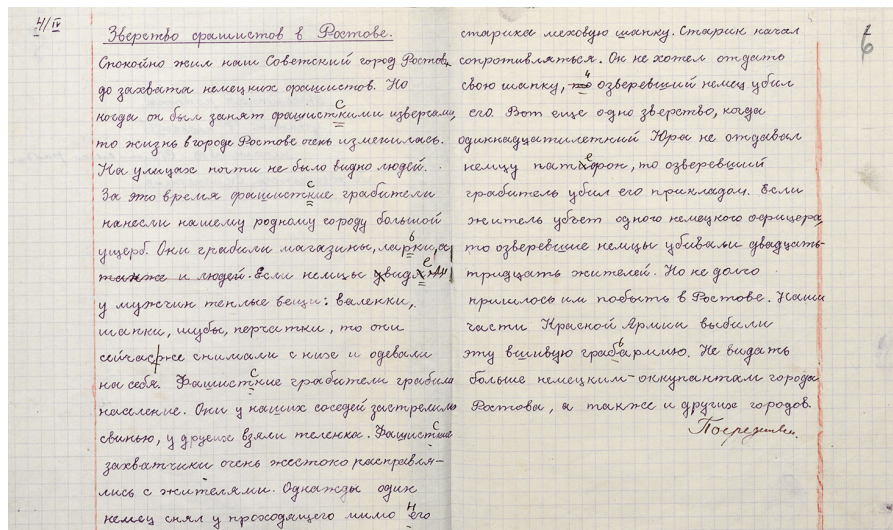 4/IV
Зверство фашистов в Ростове.
Спокойно жил наш Советский город Ростов,
до захвата немецких фашистов. Но
когда он был занят фашисткими извергами,
то жизнь в городе Ростове очень изменилась.
На улицах почти не было видно людей.
За это время фашисткие грабители
нанесли нашему родному городу большой
ущерб. Они грабили магазины, ларьки, а
также и людей. Если немцы увидели
у мужчин теплые вещи: валенки,
шапки, шубы, перчатки, то они
сейчас же снимали с них и одевали
на себя. Фашисткие грабители грабили
население. Они у наших соседей застрелили
свинью, у других взяли теленка. Фашисткие
захватчики очень жестоко расправля-
лись с жителями. Однажды один
немец снял у проходящего мимо него
6
старика меховую шапку. Старик начал
сопротивляться. Он не хотел отдать
свою шапку, и озверевший немец убил
его. Вот еще одно зверство, когда
одинкадцатилетний Юра не отдавал
немцу патефон, то озверевший
грабитель убил его прикладом. Если
житель убьет одного немецкого офицера,
то озверевшие немцы убивали двадцать-
тридцать жителей. Но не долго
пришлось им побыть в Ростове. Наши
части Красной Армии выбили
эту вшивую грабьармию. Не видать
больше немецким-оккупантам города
Ростова, а также и других городов.
Посредствен.